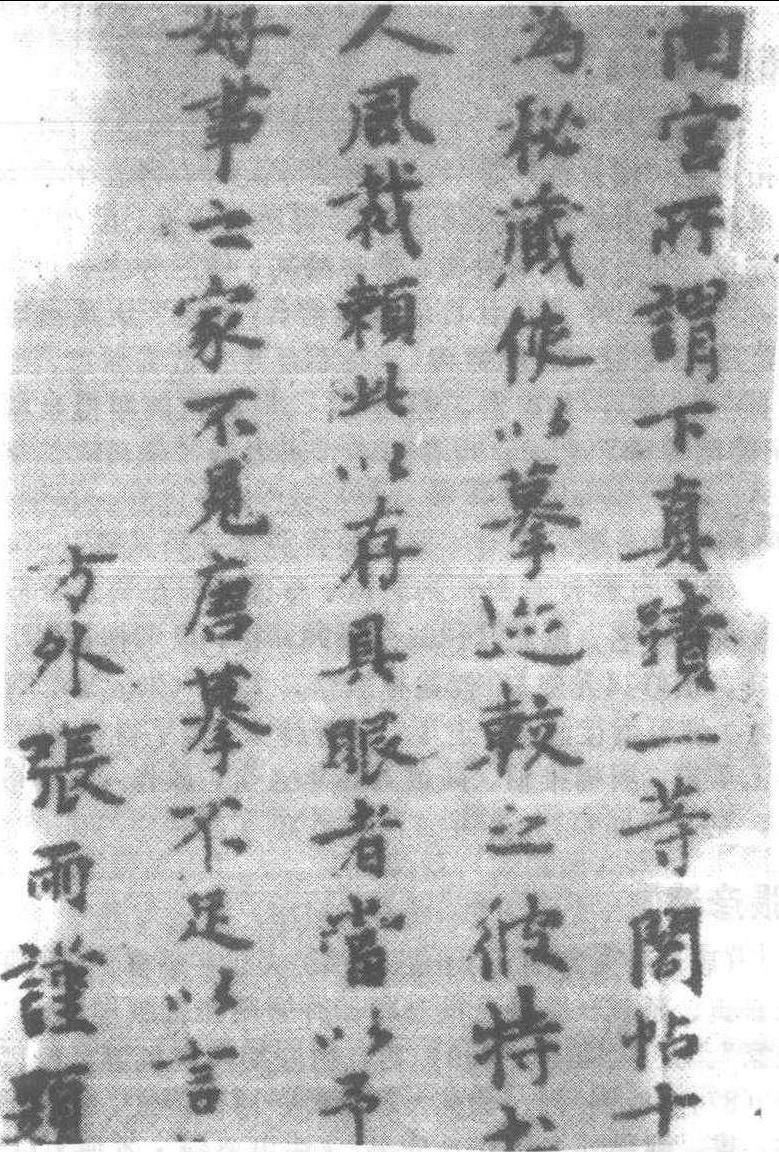 南宮所謂下真蹟一等閣帖十
為秘藏使以摹迹較之彼特
人風裁賴此以存具眼者當以予
好事之家不見唐摹不足以言
方外張雨謹題